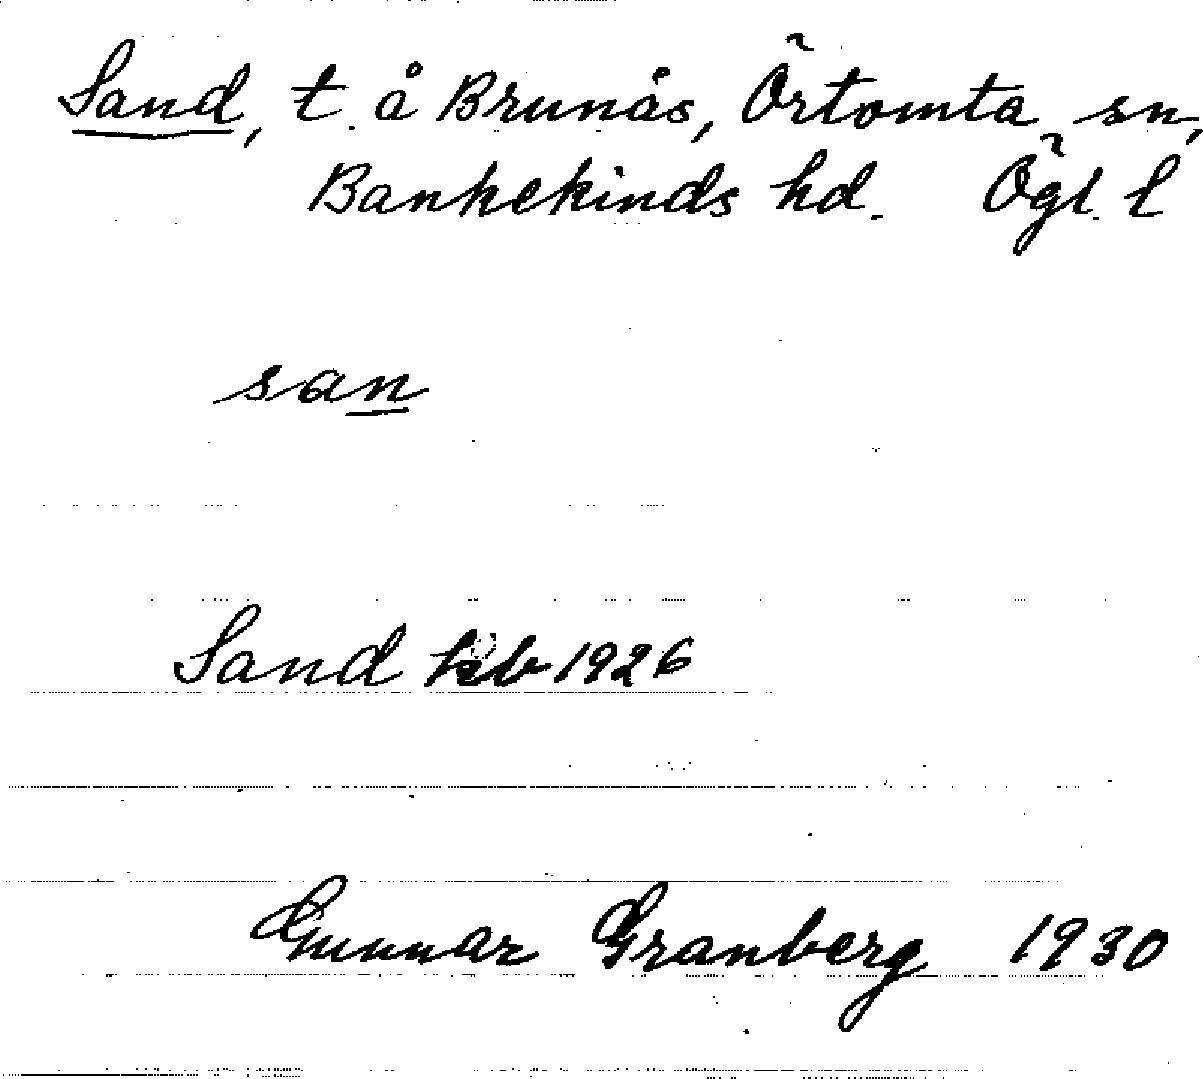 Sand, t. å Brunås, Örtomta sn,
Bankekinds hd. Ögl. l
san
Sand kb 1926
Gunnar Granberg 1930